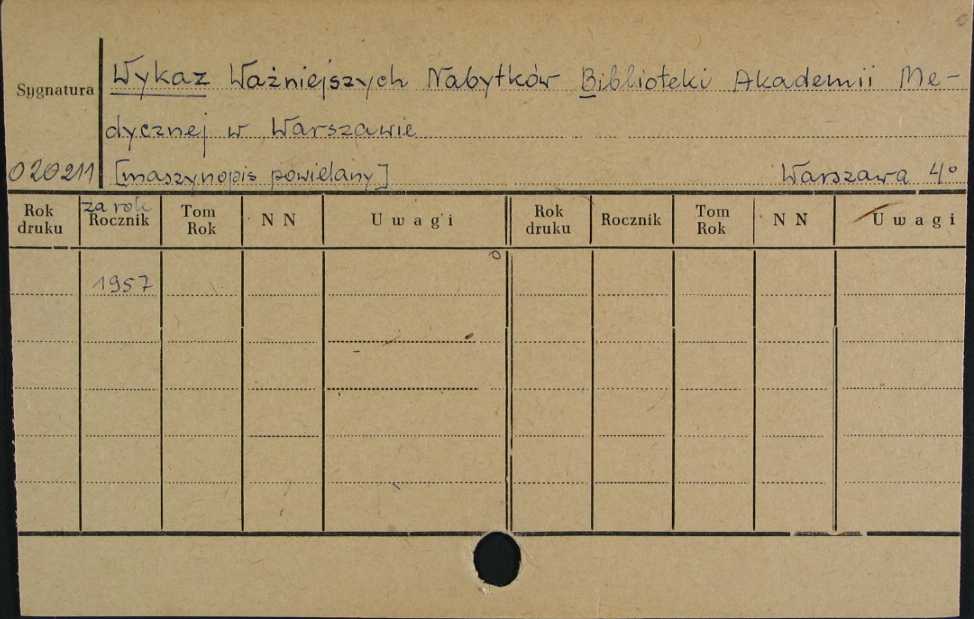 Sygnatura
Wykaz Ważniejszych Nabytków Biblioteki Akademii Me-
dycznej w Warszawie
020211 [maszynopis powielany] Warszawa 4°
Rok druku za rok Rocznik Tom Rok N N Uwagi Rok druku Rocznik Tom Rok N N Uwagi
1957